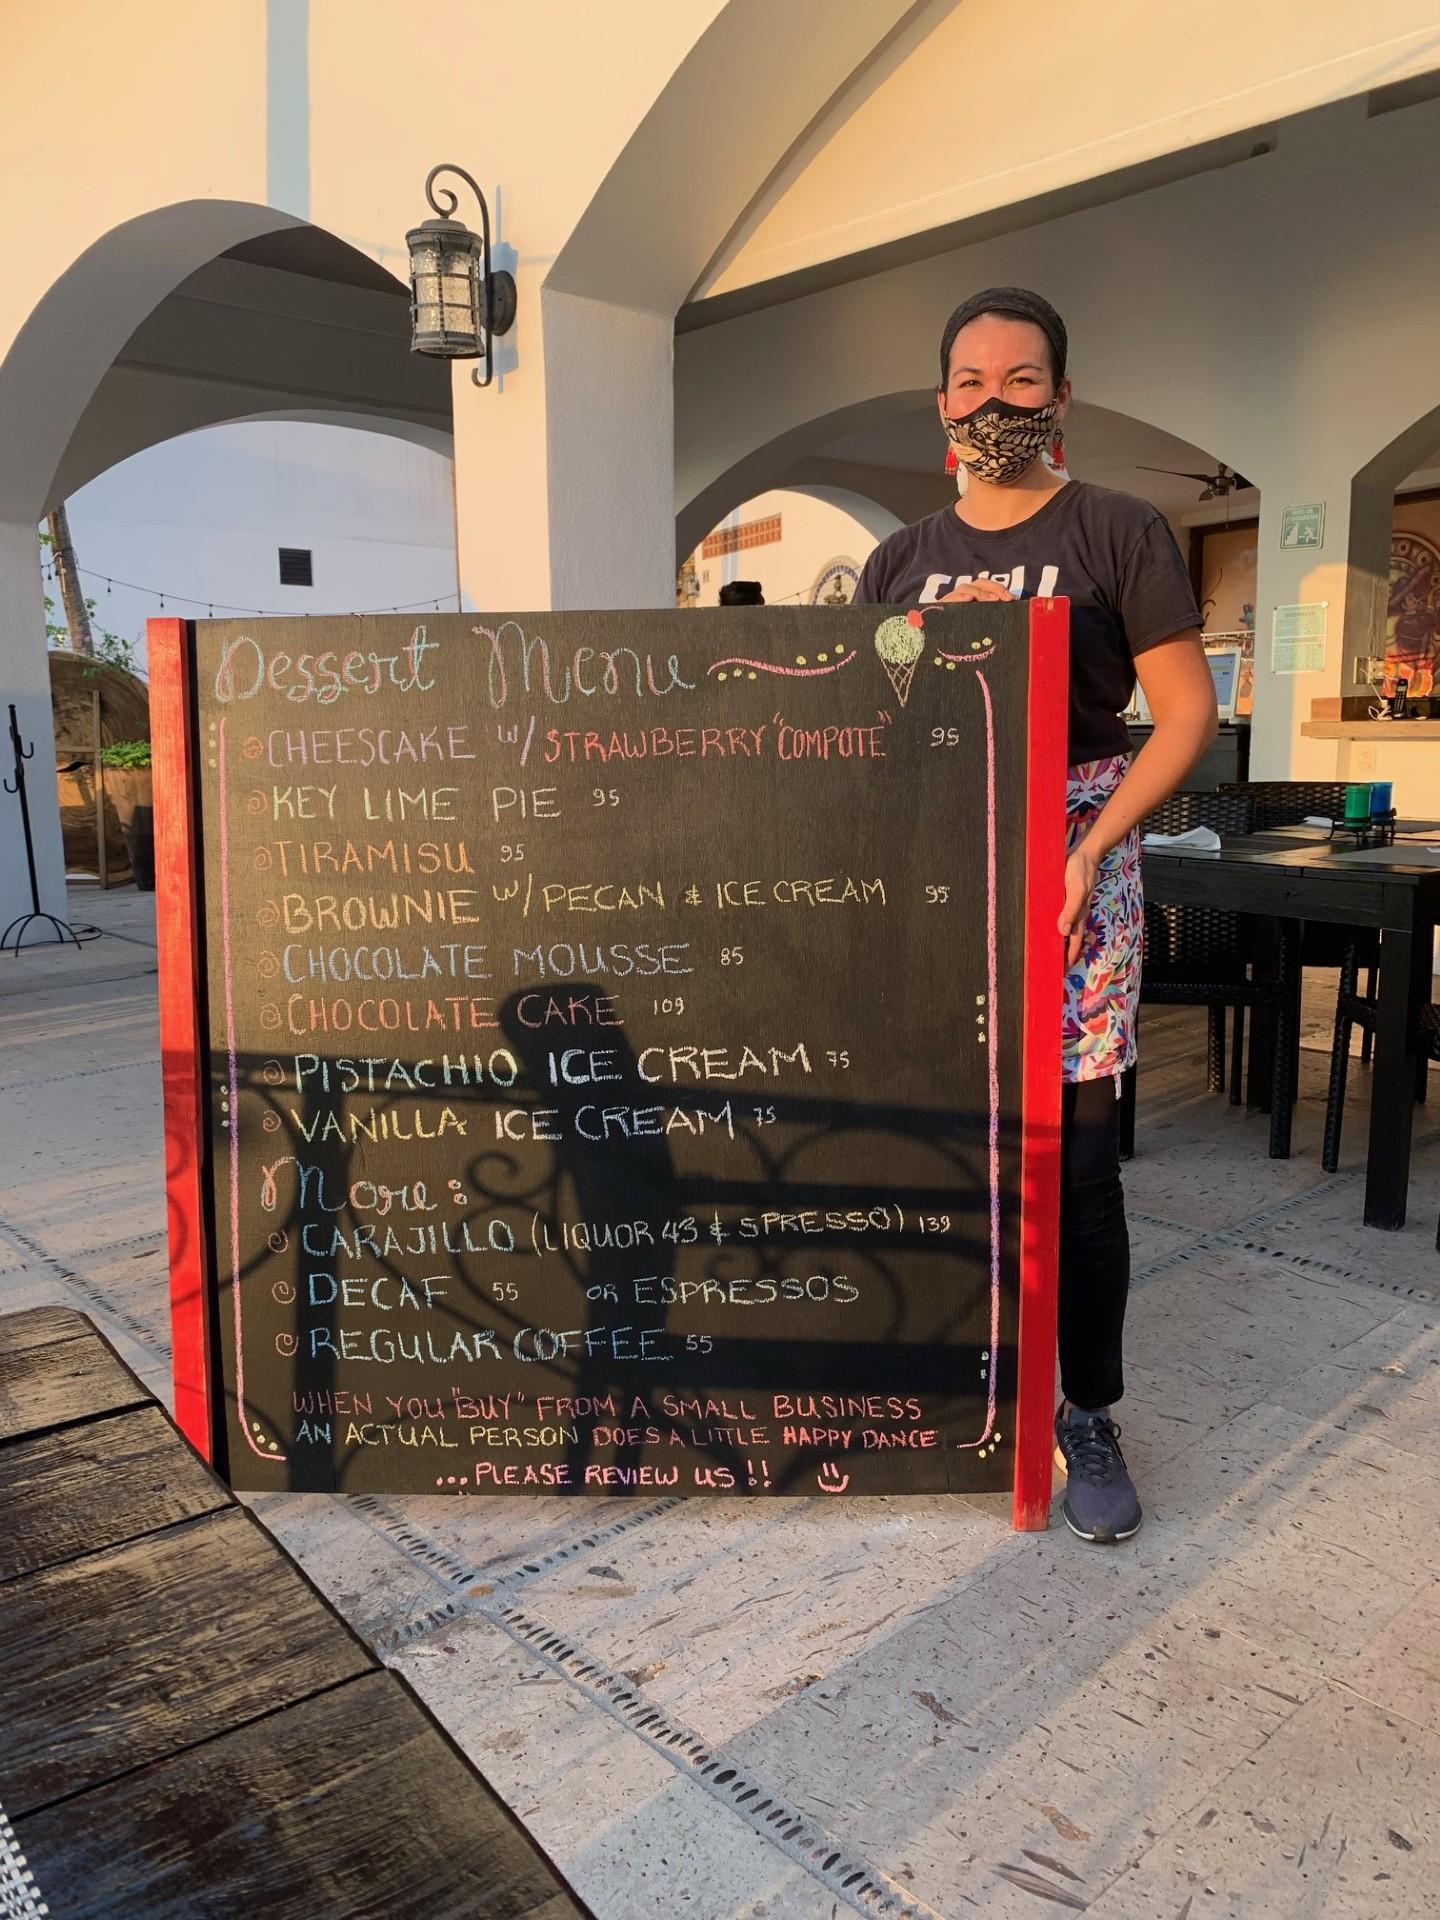 Dessert Menu
CHEESCAKE W/ STRAWBERRY "COMPOTE" 95
KEY LIME PIE 95
TIRAMISU 95
BROWNIE W/ PECAN & ICE CREAM 95
CHOCOLATE MOUSSE 85
CHOCOLATE CAKE 109
PISTACHIO ICE CREAM 75
VANILLA ICE CREAM 75
More:
CARAJILLO (LIQUOR 43 & SPRESSO) 139
DECAF 55 OR ESPRESSOS
REGULAR COFFEE 55
WHEN YOU "BUY" FROM A SMALL BUSINESS
AN ACTUAL PERSON DOES A LITTLE HAPPY DANCE
...PLEASE REVIEW US!!